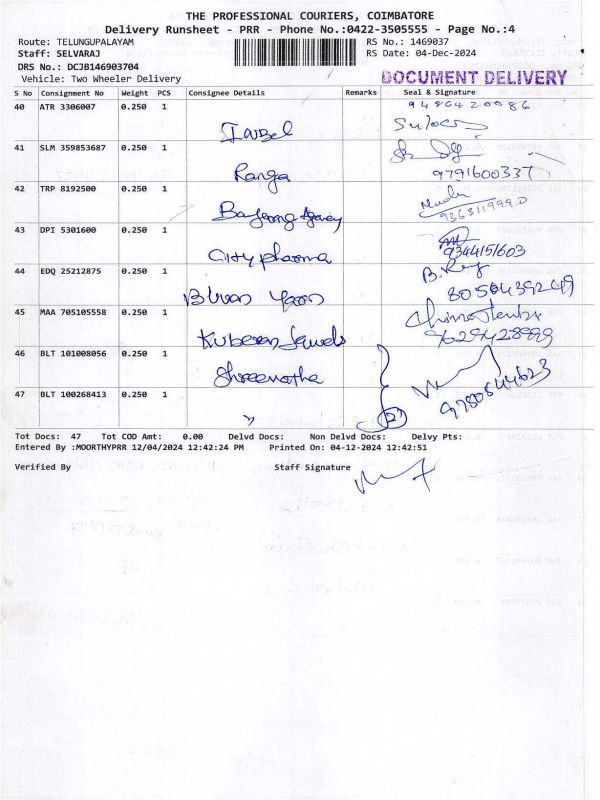 THE PROFESSIONAL COURIERS, COIMBATORE
Delivery Runsheet - PRR - Phone No.:0422-3505555 - Page No.:4
Route: TELUNGUPALAYAM RS No.: 1469037
Staff: SELVARAJ RS Date: 04-Dec-2024
DRS No.: DCJB146903704
Vehicle: Two Wheeler Delivery DOCUMENT DELIVERY
S No Consignment No Weight PCS Consignee Details Remarks Seal & Signature
40 ATR 3306007 0.250 1 9486420086
41 SLM 359853687 0.250 1
Ranga 9791600337
42 TRP 8192500 0.250 1
Agency 9363119990
43 DPI 5301600 0.250 1
City pharma 9344151603
44 EDQ 25212875 0.250 1
45 MAA 705105558 0.250 1
Kuberan Jewels
46 BLT 101008056 0.250 1
Shreenatha
47 BLT 100268413 0.250 1
"
(2)
Tot Docs: 47 Tot COD Amt: 0.00 Delvd Docs: Non Delvd Docs: Delvy Pts:
Entered By :MOORTHYPRR 12/04/2024 12:42:24 PM Printed On: 04-12-2024 12:42:51
Verified By Staff Signature